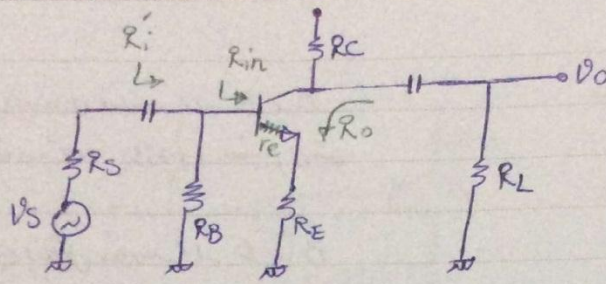 Ri'
Rin
RC
υo
Ro
re
RS
υS
RB
RE
RL